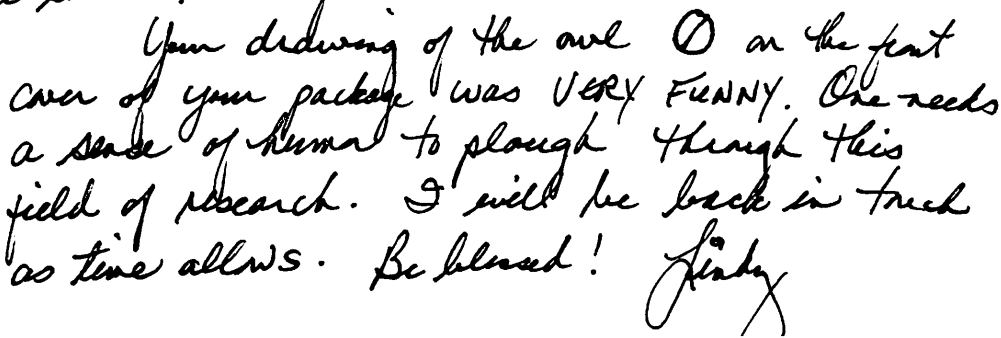 Your drawing of the owl Ø on the front
cover of your package was VERY FUNNY. One needs
a sense of humor to plough through this
field of research. I will be back in touch
as time allows. Be blessed!